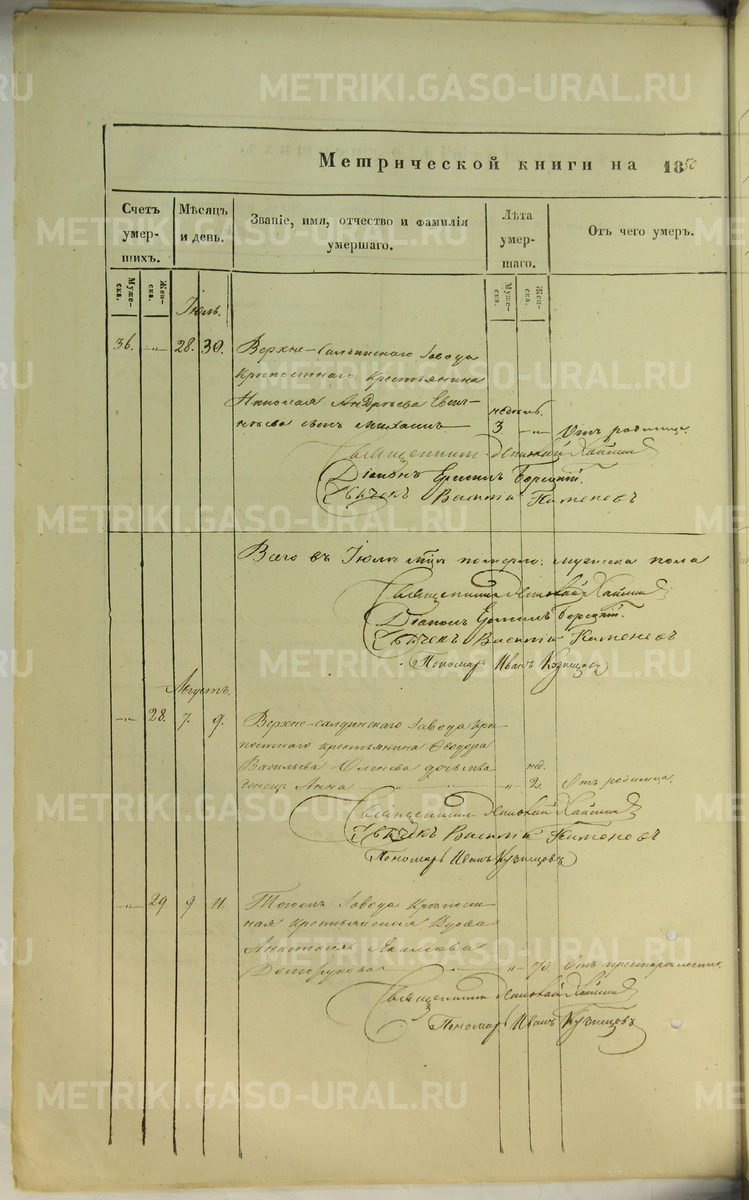 Метрической книги на 1850
Счетъ умер- шихъ.
Мѣсяцъ и день.
Званіе, имя, отчество и фамилія умершаго.
Лѣта умер- шаго.
Отъ чего умеръ.
Муже- ска.
Жен- ска.
Муже- ска.
Жен- ска.
Іюль.
36. „ 28. 30. Верхне-Салдинскаго Завода
крѣпостнаго крестьянина
Николая Андрѣева
сынъ Михаилъ недѣль 3 „ Отъ родимца.
Священникъ
Діаконъ
Дьячекъ Василій Каменевъ
Всего въ Іюлѣ м-цѣ померло: мужеска пола
Священникъ
Діаконъ
Дьячекъ Василій Каменевъ
Пономарь Иванъ Кузнецовъ
Августъ.
„ 28. 7. 9. Верхне-салдинскаго Завода крѣ-
постнаго крестьянина Ѳеодора
Васильева дочь мла-
денецъ Анна „ нед. 2. Отъ родимца.
Священникъ
Дьячекъ Василій Каменевъ
Пономарь Иванъ Кузнецовъ
„ 29 9 11. Тогожъ Завода крѣпост-
ная крестьянская вдова
Анастасія Акилиева
Долгорукова „ 70. Отъ престарѣлости.
Священникъ
Пономарь Иванъ Кузнецовъ
METRIKI.GASO-URAL.RU